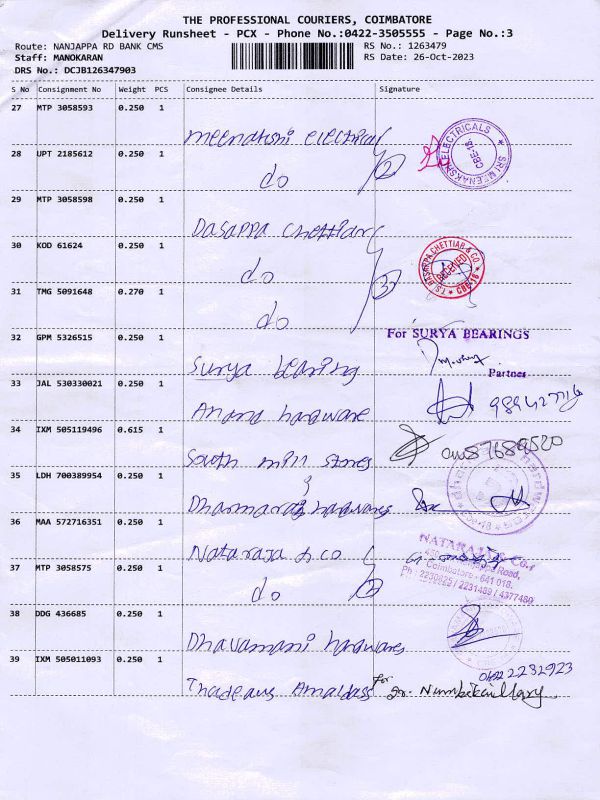 THE PROFESSIONAL COURIERS, COIMBATORE
Delivery Runsheet - PCX - Phone No.:0422-3505555 - Page No.:3
Route: NANJAPPA RD BANK CMS
RS No.: 1263479
Staff: MANOKARAN
RS Date: 26-Oct-2023
DRS No.: DCJB126347903
S No Consignment No Weight PCS Consignee Details Signature
27 MTP 3058593 0.250 1
meenatshi electrical
SRI MEENAKSHI ELECTRICALS
CBE-18.
28 UPT 2185612 0.250 1
do
2
29 MTP 3058598 0.250 1
Dasappa chettiar
30 KOD 61624 0.250 1
do
3
T.S. DASAPPA CHETTIAR & CO.
RECEIVED
CBE-18
31 TMG 5091648 0.270 1
do
32 GPM 5326515 0.250 1
For SURYA BEARINGS
Surya bearing
Partner
33 JAL 530330021 0.250 1
Anand hardware
34 IXM 505119496 0.615 1
South mill stores
35 LDH 700389954 0.250 1
Dharmaraj hardwares
36 MAA 572716351 0.250 1
Nataraja & co
NATARAJA & Co.,
Road,
Coimbatore - 641 018.
Ph : 2230825 / 2231489 / 4377489
37 MTP 3058575 0.250 1
do
2
38 DDG 436685 0.250 1
Dhavamani hardwares
39 IXM 505011093 0.250 1
0422 2232923
for